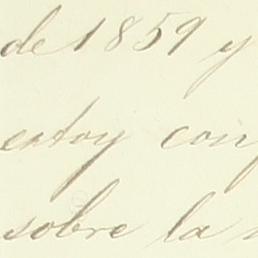 de 1859 y
estoy con
sobre la